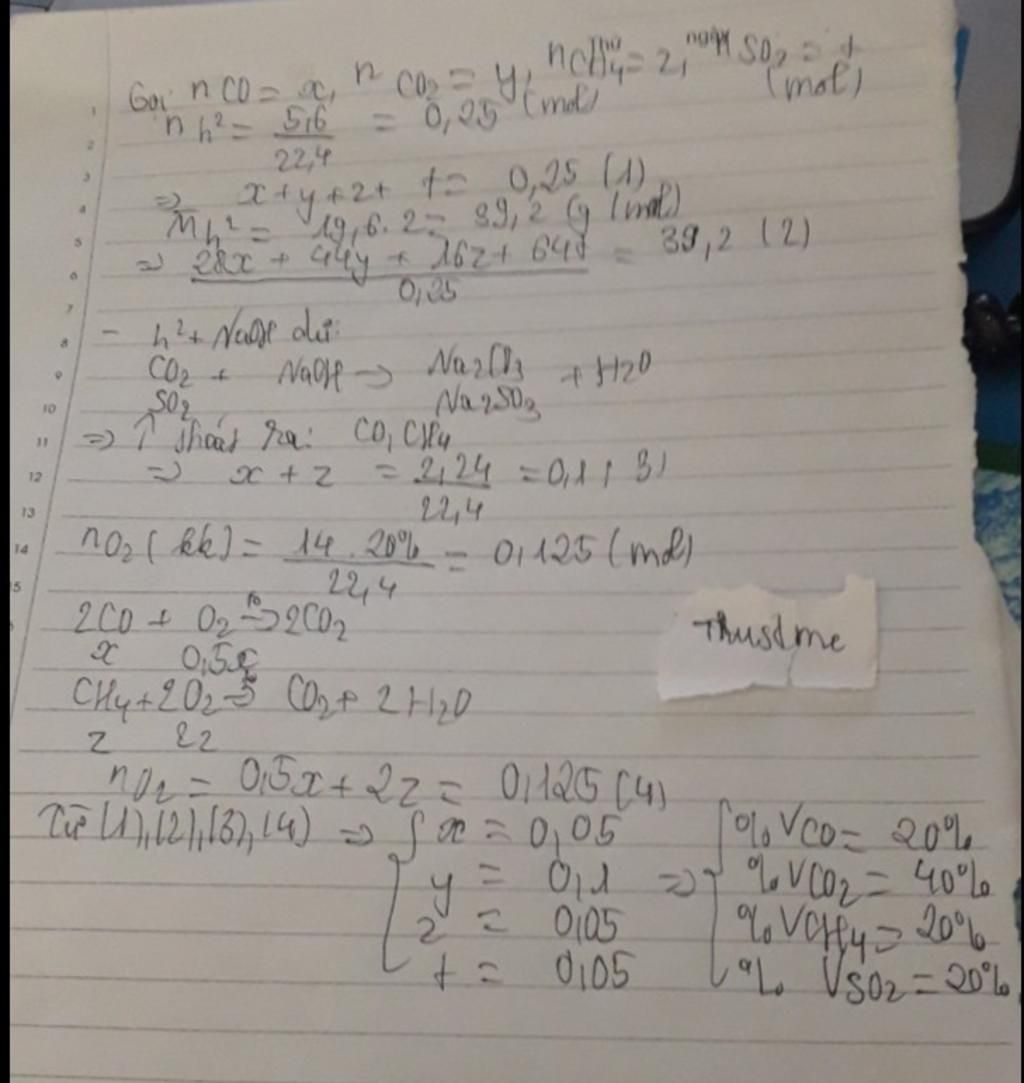 Gọi nCO = x, nCO₂ = y, nCH₄ = z, SO₂ = t
(mol) (mol)
n h² = 5,6/22,4 = 0,25
⇒ x + y + z + t = 0,25 (1)
M̄ h² = 19,6.2 = 39,2 (g/mol)
⇒ (28x + 44y + 16z + 64t)/0,25 = 39,2 (2)
- h² + NaOH dư:
CO₂ + NaOH → Na₂CO₃ + H₂O
SO₂ Na₂SO₃
⇒ ↑ thoát ra: CO, CH₄
⇒ x + z = 2,24/22,4 = 0,1 (3)
nO₂ (kk) = 14.20%/22,4 = 0,125 (mol)
2CO + O₂ →t° 2CO₂
x 0,5x
Trust me
CH₄ + 2O₂ →t° CO₂ + 2H₂O
z 2z
nO₂ = 0,5x + 2z = 0,125 (4)
Từ (1), (2), (3), (4) ⇒ { x = 0,05 { %VCO = 20%
y = 0,1 ⇒ %VCO₂ = 40%
z = 0,05 %VCH₄ = 20%
t = 0,05 % VSO₂ = 20%
1
2
3
4
5
6
7
8
9
10
11
12
13
14
5